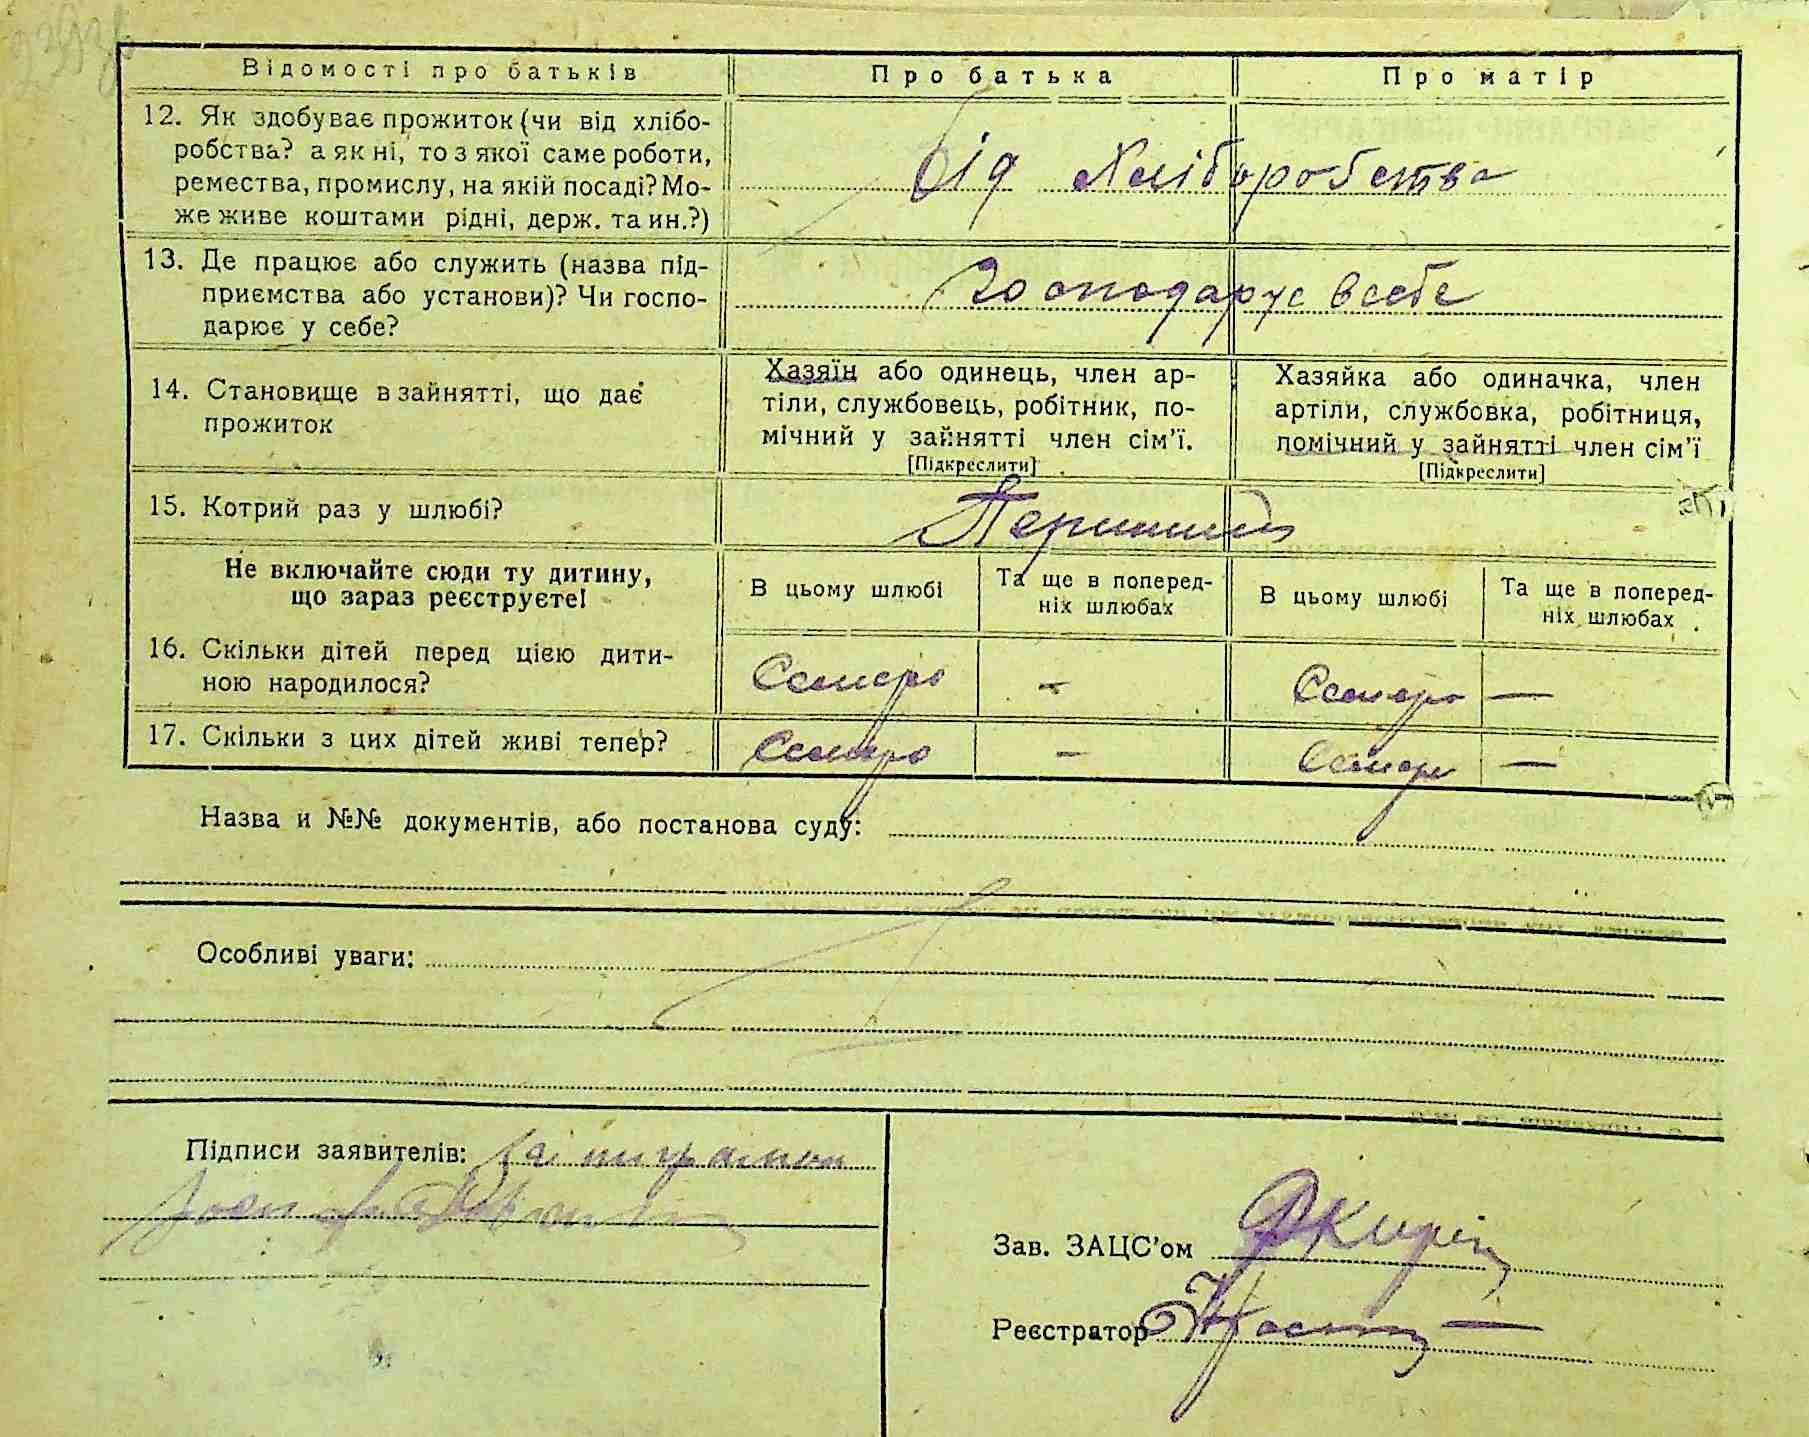 Відомості про батьків Про батька Про матір
12. Як здобуває прожиток (чи від хлібо-
робства? а як ні, то з якої саме роботи,
ремества, промислу, на якій посаді? Мо-
же живе коштами рідні, держ. та ин.?)
від хліборобства
13. Де працює або служить (назва під-
приємства або установи)? Чи госпо-
дарює у себе?
господарує в себе
14. Становище в зайнятті, що дає
прожиток
Хазяїн або одинець, член ар-
тіли, службовець, робітник, по-
мічний у зайнятті член сім’ї.
[Підкреслити]
Хазяйка або одиначка, член
артіли, службовка, робітниця,
помічний у зайнятті член сім’ї
[Підкреслити]
15. Котрий раз у шлюбі?
Перший
Не включайте сюди ту дитину,
що зараз реєструєте!
В цьому шлюбі
Та ще в поперед-
ніх шлюбах
В цьому шлюбі
Та ще в поперед-
ніх шлюбах
16. Скільки дітей перед цією дити-
ною народилося?
Семеро - Семеро —
17. Скільки з цих дітей живі тепер?
Семеро - Семеро —
Назва и №№ документів, або постанова суду:
Особливі уваги:
Підписи заявителів:
Зав. ЗАЦС’ом
Реєстратор